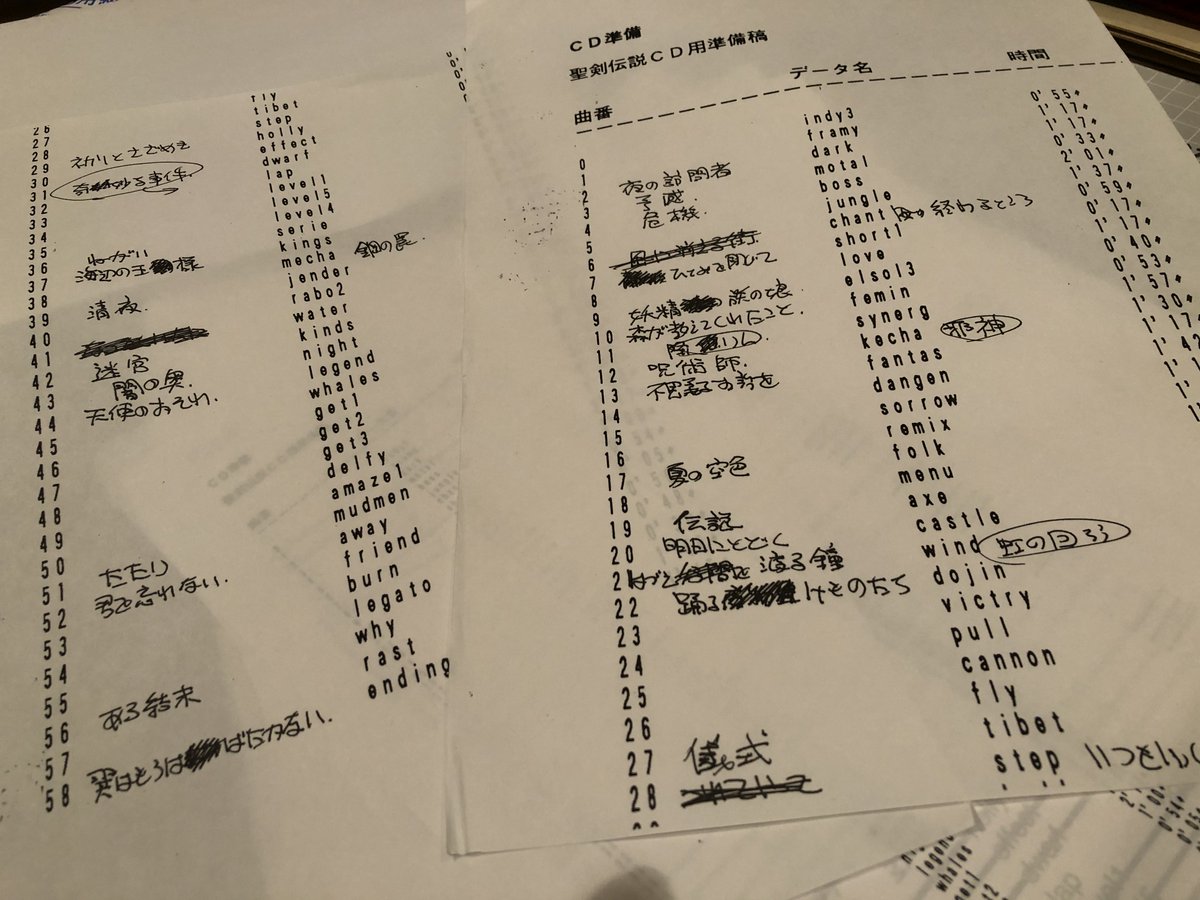 CD準備
聖剣伝説CD用準備稿
曲番 データ名 時間
0 indy3 0'55+
1 夜の訪問者 framy 1'17+
2 予感. dark 1'17+
3 危機. motal 0'33+
4 boss 2'01+
5 jungle 1'37+
6 ひとみを閉じて chant 0'59+
7 short1 0'17+
8 妖精 族の娘. love 1'17+
9 森が教えてくれたこと. elsol3 0'40+
10 femin 0'53+
11 呪術師. synerg 1'57+
12 不思議なお kecha 邪神 1'30+
13 fantas 1'17+
14 dangen 1'42
15 sorrow
16 夏の空色 remix
17 folk
18 menu
19 伝説 axe
20 明日にとどく castle
21 を渡る鐘 wind 虹の回ろう
22 踊るけものたち dojin
23 victry
24 pull
25 cannon
26 fly
27 儀式 tibet
28 step いつも
26 fly
27 tibet
28 step
29 祈りとささやき holly
30 effect
31 奇妙な事件. dwarf
32 lap
33 level1
34 level5
35 level4
36 ねがい serie
37 海辺の王様 kings
38 mecha 鋼の罠.
39 清夜. jender
40 rabo2
41 water
42 迷宮 kinds
43 闇の奥. night
44 天使のおそれ. legend
45 whales
46 get1
47 get2
48 get3
49 delfy
50 amaze1
51 たたり mudmen
52 君を忘れない. away
53 friend
54 burn
55 legato
56 ある結末 why
57 rast
58 翼はもうはばたかない. ending
legend
whales